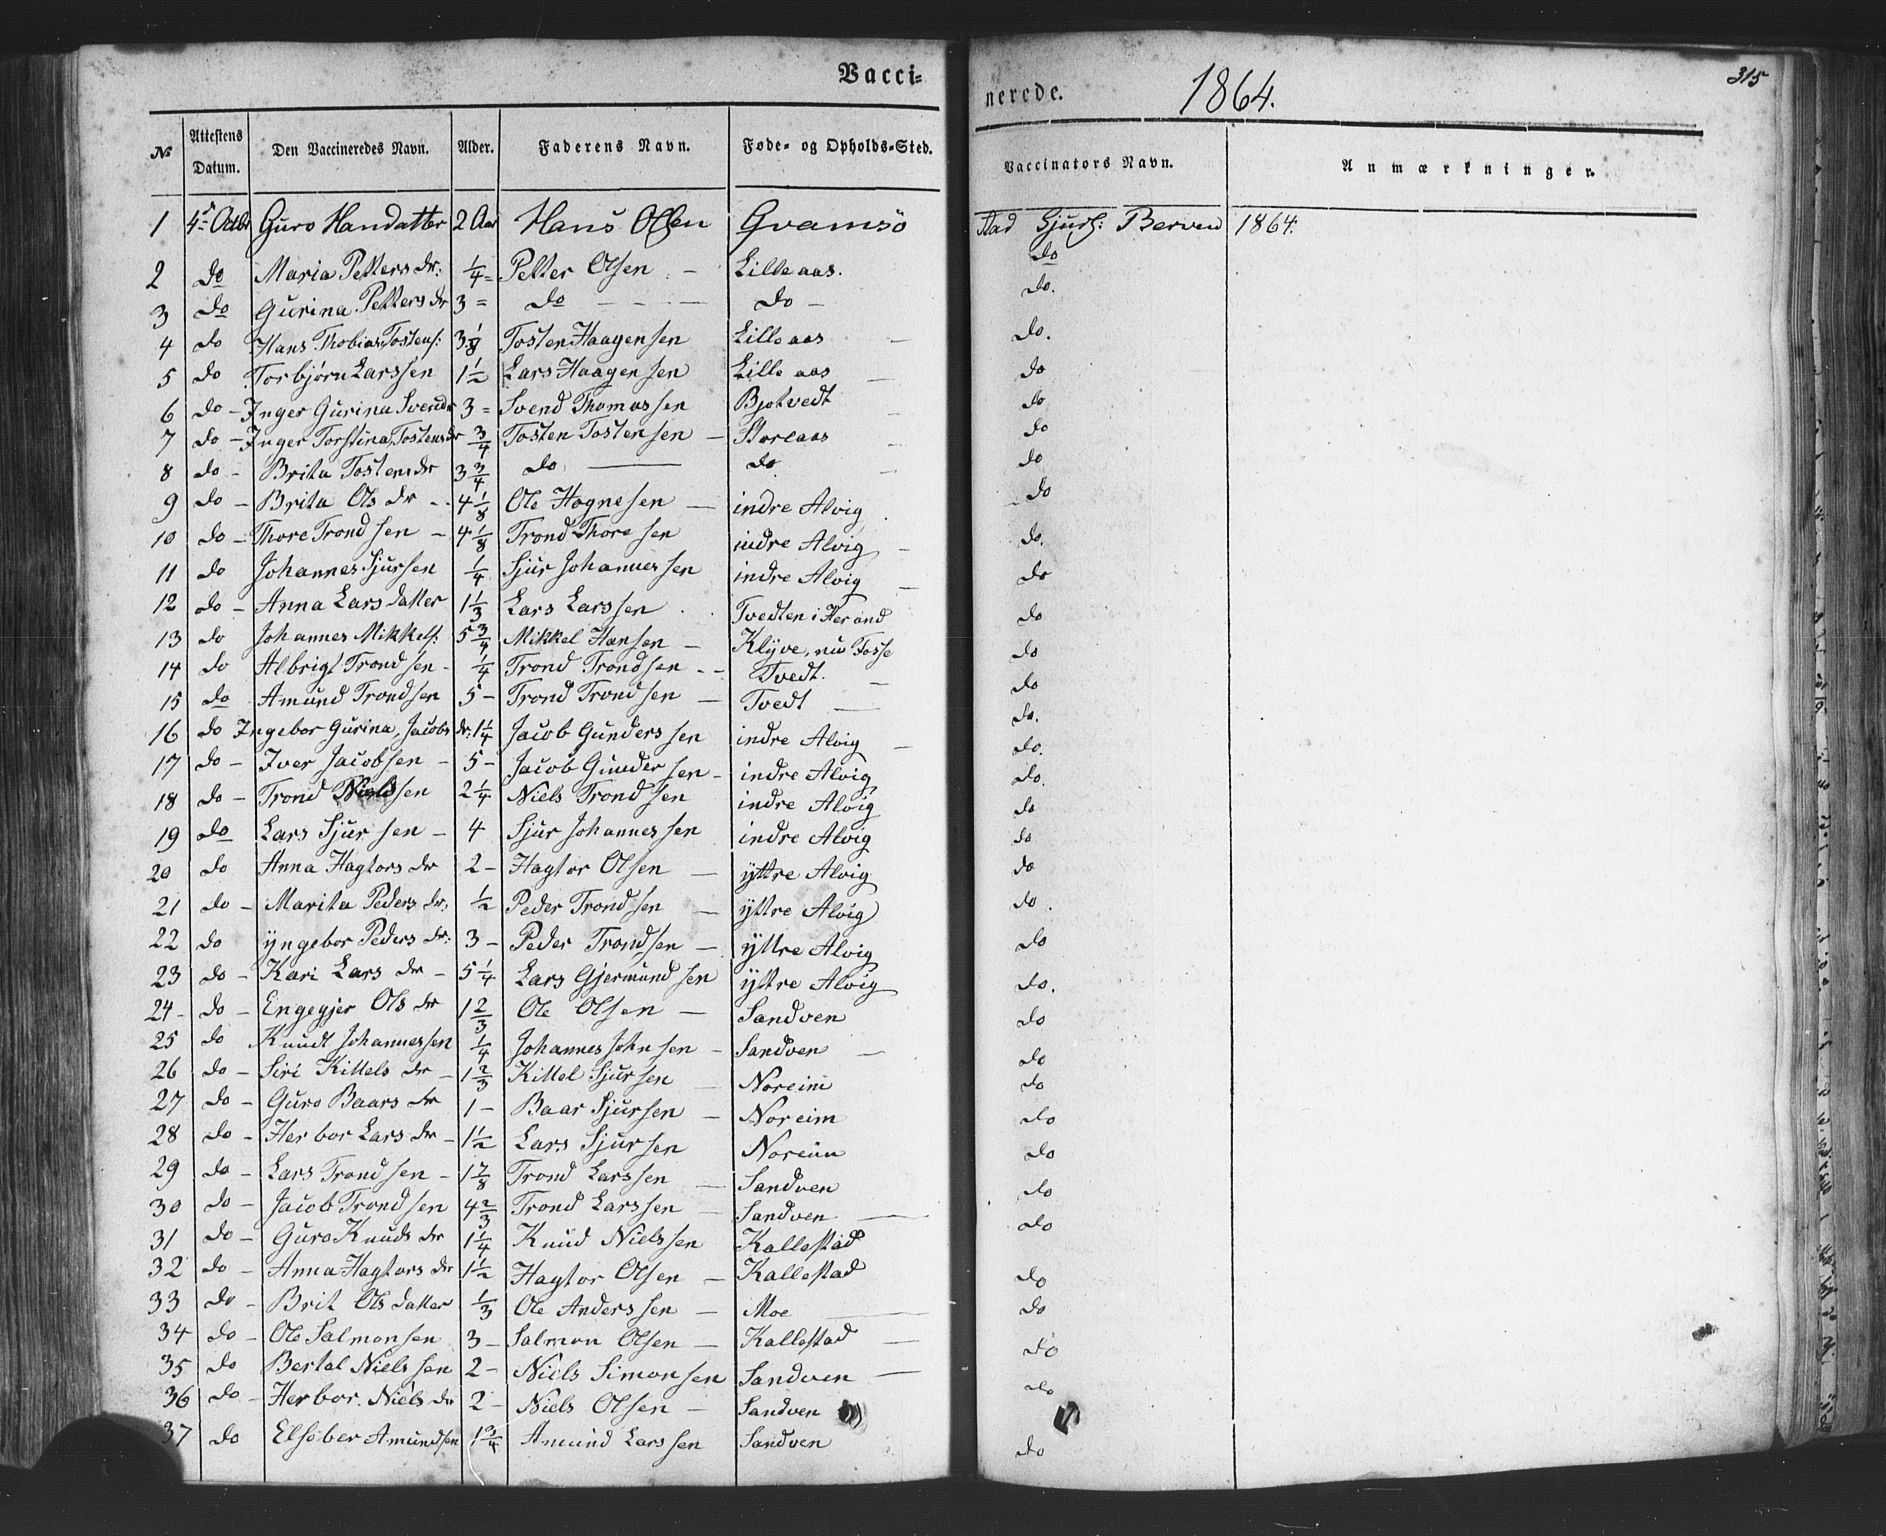 Vacci-
nerede. 1864. 315
№ Attestens Datum. Den Vaccineredes Navn. Alder. Faderens Navn. Føde- og Opholds-Sted. Vaccinators Navn. Anmærkninger.
1 4de Octbr Guro Handatter 2 Aar Hans Olsen Qvamsö Sjurs: Berven 1864.
2 do Maria Petters dr: 1/4 = Petter Olsen - Lilleaas. do
3 do Gurina Petters dr 3 = do - - - do - do.
4 do Hans Thobias Tostens: 3 1/8 Tosten Haagensen Lilleaas - do.
5 do Torbjørn Larssen 1 1/2 Lars Haagensen Lilleaas - do
6 do - Inger Gurina Svendr 3 = Svend Thomassen Bjotvedt - do
7 do - Inger Torstina Tostensdr 3/4 Tosten Tostensen - Storeaas - do
8 do - Brita Tostensdr 3 3/4 do - do - do
9 do - Brita Ols dr - 4 1/8 Ole Hognesen - indre Alvig do
10 do - Thore Trondsen - 4 1/8 Trond Thoresen indre Alvig - do.
11 do Johannes Sjursen 1/4 Sjur Johannessen indre Alvig - do
12 do - Anna Larsdatter 1 1/3 Lars Larssen Tvedten i Herand do
13 do Johannes Mikkels: 5 3/4 Mikkel Hansen - Klyve, nu Fosse do
14 do Albrigt Trondsen - 1/4 Trond Trondsen - - Tvedt. - do
15 do Amund Trondsen 5 - Trond Trondsen - Tvedt - do.
16 do Ingebor Gurina, Jacobs dr. 1 1/4 Jacob Gunderssen indre Alvig - do.
17 do - Iver Jacobsen - 5 - Jacob Gundersen - indre Alvig do.
18 do - Trond Nielssen 2 1/4 Niels Trondsen indre Alvig do
19 do Lars Sjursen - 4 Sjur Johannessen indre Alvig do
20 do Anna Hagtors dr 2 - Hagtor Olsen - yttre Alvig do
21 do - Marita Peders dr. 1/2 Peder Trondsen - yttre Alvig do.
22 do yngebor Peders dr: 3 - Peder Trondsen - yttre Alvig do
23 do - Kari Lars dr - 5 1/4 Lars Gjermundsen yttre Alvig do.
24 - do - Engegjer Ols dr 1 2/3 Ole Olsen - Sandven do
25 do Knudt Johannessen 1/4 Johannes Johnsen - Sandven - do
26 do - Siri Kittels dr - 1 2/3 Kittel Sjursen - Noreim do
27 do - Guro Baars dr 1 - Baar Sjursen - Noreim do
28 do - Herbor Lars dr - 1 1/2 Lars Sjursen Noreim do
29 do - Lars Trondsen - 1 7/8 Trond Larssen - Sandven do
30 do - Jacob Trondsen 4 2/3 Trond Larssen - Sandven - do
31 do - Guro Knuds dr 1 1/4 Knud Nielssen Kallestad
32 do - Anna Hagtors dr 1 1/2 Hagtor Olsen - Kallestad do
33 do - Brit Olsdatter 1/3 Ole Anderssen - Moe - do
34 do - Ole Salmonsen 3 - Salmon Olsen - Kallestad - do
35 do Bertel Nielssen 2 - Niels Simonsen Sandven - do
36 do - Herbor Niels dr 2 - Niels Olsen - Sandven
37 do Elsober Amundsen 1 3/4 Amund Larssen Sandven do